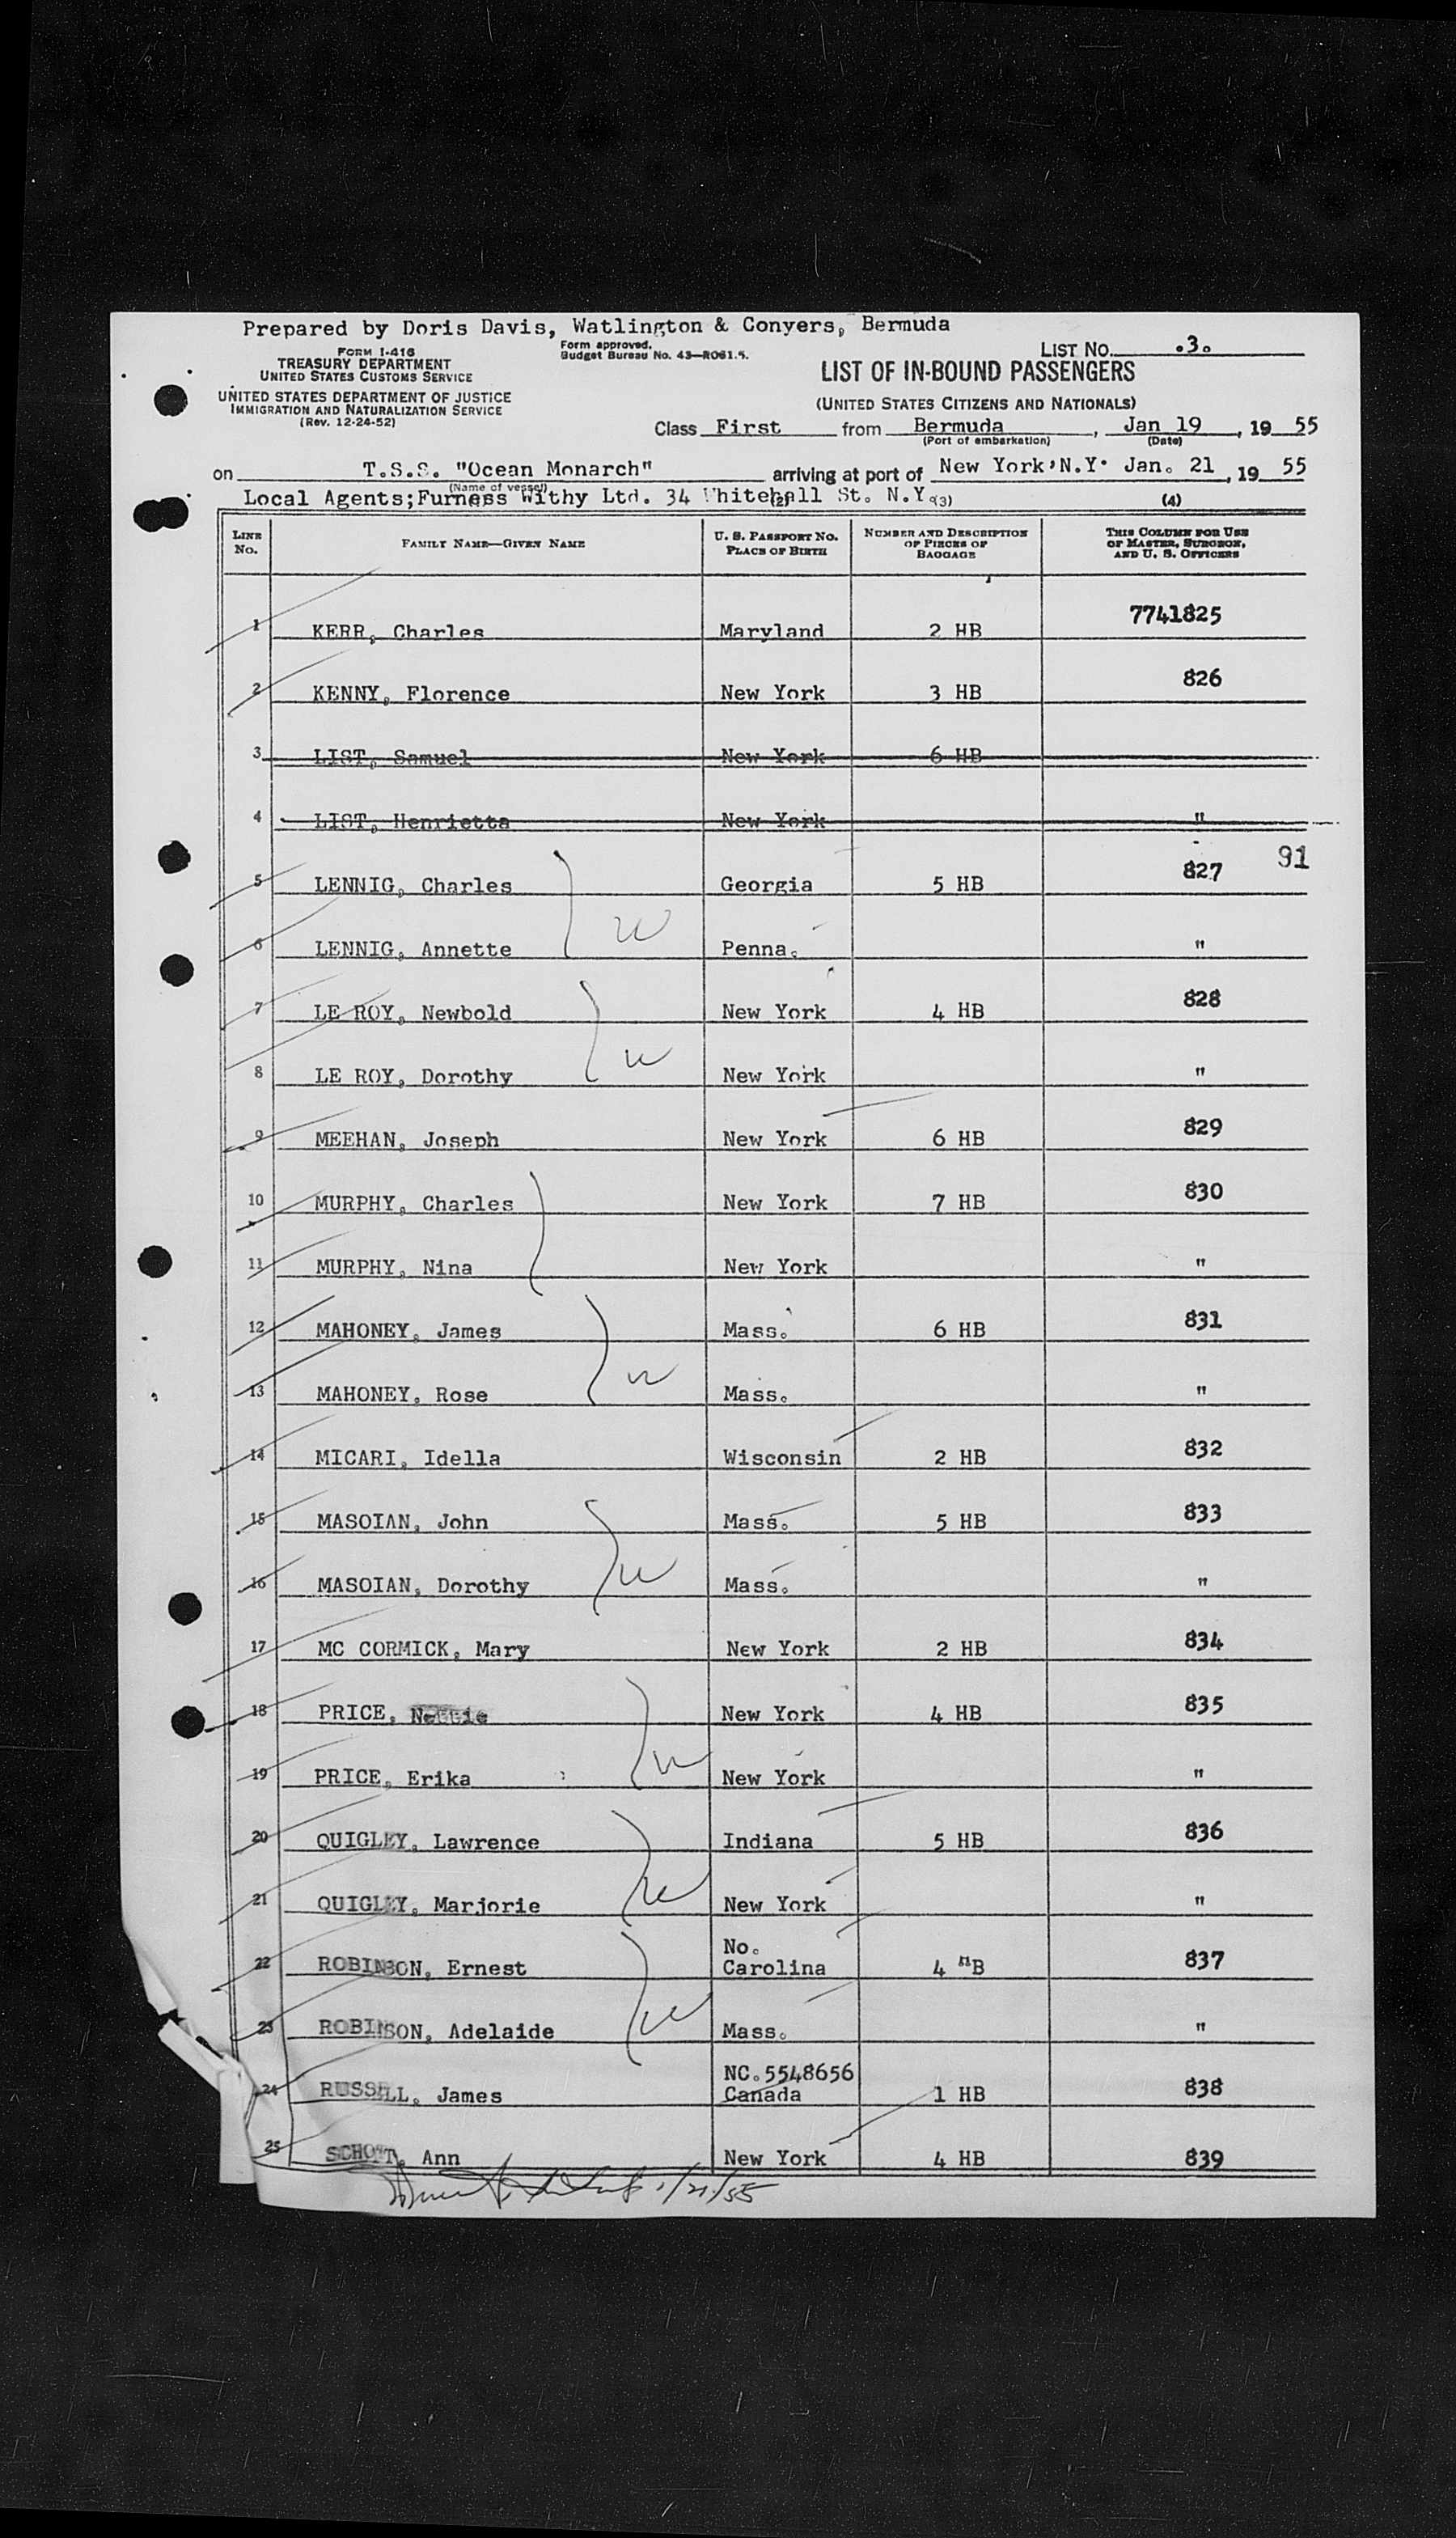 Prepared by Doris Davis, Watlington & Conyers, Bermuda
FORM I-416
TREASURY DEPARTMENT
UNITED STATES CUSTOMS SERVICE
UNITED STATES DEPARTMENT OF JUSTICE
IMMIGRATION AND NATURALIZATION SERVICE
(Rev. 12-24-52)
Form approved.
Budget Bureau No. 43—R061.5.
LIST NO. .3.
LIST OF IN-BOUND PASSENGERS
(UNITED STATES CITIZENS AND NATIONALS)
Class First from Bermuda, Jan 19, 19 55
(Port of embarkation) (Date)
on T.S.S. "Ocean Monarch" arriving at port of New York, N.Y. Jan. 21, 19 55
(Name of vessel)
Local Agents;Furness Withy Ltd. 34 Whitehall St. N.Y.
(2) (3) (4)
LINE No. FAMILY NAME—GIVEN NAME U. S. PASSPORT NO. PLACE OF BIRTH NUMBER AND DESCRIPTION OF PIECES OF BAGGAGE THIS COLUMN FOR USE OF MASTER, SURGEON, AND U. S. OFFICERS
1 KERR, Charles Maryland 2 HB 7741825
2 KENNY, Florence New York 3 HB 826
3 LIST, Samuel New York 6 HB
4 LIST, Henrietta New York "
91
5 LENNIG, Charles Georgia 5 HB 827
6 LENNIG, Annette Penna. "
W
7 LE ROY, Newbold New York 4 HB 828
8 LE ROY, Dorothy New York "
W
9 MEEHAN, Joseph New York 6 HB 829
10 MURPHY, Charles New York 7 HB 830
11 MURPHY, Nina New York "
12 MAHONEY, James Mass. 6 HB 831
13 MAHONEY, Rose Mass. "
W
14 MICARI, Idella Wisconsin 2 HB 832
15 MASOIAN, John Mass. 5 HB 833
16 MASOIAN, Dorothy Mass. "
W
17 MC CORMICK, Mary New York 2 HB 834
18 PRICE, New York 4 HB 835
19 PRICE, Erika New York "
W
20 QUIGLEY, Lawrence Indiana 5 HB 836
21 QUIGLEY, Marjorie New York "
W
22 ROBINSON, Ernest No. Carolina 4 HB 837
23 ROBINSON, Adelaide Mass. "
W
24 RUSSELL, James NC.5548656 Canada 1 HB 838
25 SCHOTT, Ann New York 4 HB 839
1/21/55